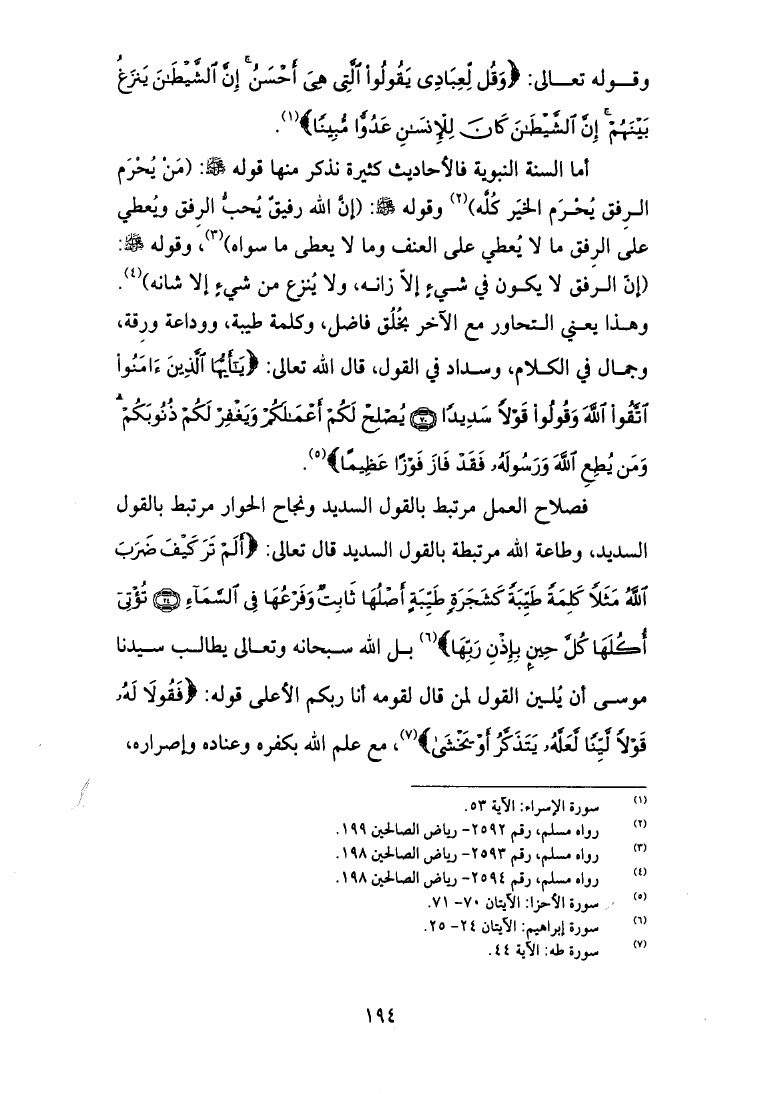 وقـــوله تعـــالى: ﴿وَقُل لِّعِبَادِى يَقُولُوا۟ ٱلَّتِى هِىَ أَحْسَنُ ۚ إِنَّ ٱلشَّيْطَـٰنَ يَنزَغُ
بَيْنَهُمْ ۚ إِنَّ ٱلشَّيْطَـٰنَ كَانَ لِلْإِنسَـٰنِ عَدُوًّا مُّبِينًا﴾(١).
أما السنة النبوية فالأحاديث كثيرة نذكر منها قوله ﷺ: (مَنْ يُحْرَم
الـرفق يُحْـرَم الخَير كلَّه)(٢) وقوله ﷺ: (إنَّ الله رفيقٌ يُحبُّ الرفق ويُعطي
على الرفق ما لا يُعطي على العنف وما لا يعطى ما سواه)(٣)، وقوله ﷺ:
(إنّ الـرفق لا يكـون في شـيءٍ إلاّ زانـه، ولا يُنزع من شيءٍ إلا شانه)(٤).
وهـذا يعـني الـتحاور مع الآخر بخُلُق فاضل، وكلمة طيبة، ووداعة ورقة،
وجمـال في الكـلام، وسـداد في القول، قال الله تعالى: ﴿يَـٰٓأَيُّهَا ٱلَّذِينَ ءَامَنُوا۟
ٱتَّقُوا۟ ٱللَّهَ وَقُولُوا۟ قَوْلًا سَدِيدًا ۝٧٠ يُصْلِحْ لَكُمْ أَعْمَـٰلَكُمْ وَيَغْفِرْ لَكُمْ ذُنُوبَكُمْ ۗ
وَمَن يُطِعِ ٱللَّهَ وَرَسُولَهُۥ فَقَدْ فَازَ فَوْزًا عَظِيمًا﴾(٥).
فصلاح العمل مرتبط بالقول السديد ونجاح الحوار مرتبط بالقول
السديد، وطاعة الله مرتبطة بالقول السديد قال تعالى: ﴿أَلَمْ تَرَ كَيْفَ ضَرَبَ
ٱللَّهُ مَثَلًا كَلِمَةً طَيِّبَةً كَشَجَرَةٍ طَيِّبَةٍ أَصْلُهَا ثَابِتٌ وَفَرْعُهَا فِى ٱلسَّمَآءِ ۝٢٤ تُؤْتِىٓ
أُكُلَهَا كُلَّ حِينٍۭ بِإِذْنِ رَبِّهَا﴾(٦) بـل الله سـبحانه وتعـالى يطالـب سـيدنا
موسـى أن يُلـين القول لمن قال لقومه أنا ربكم الأعلى قوله: ﴿فَقُولَا لَهُۥ
قَوْلًا لَّيِّنًا لَّعَلَّهُۥ يَتَذَكَّرُ أَوْ يَخْشَىٰ﴾(٧)، مع علم الله بكفره وعناده وإصراره،
(١) سورة الإسراء: الآية ٥٣.
(٢) رواه مسلم، رقم ٢٥٩٢- رياض الصالحين ١٩٩.
(٣) رواه مسلم، رقم ٢٥٩٣- رياض الصالحين ١٩٨.
(٤) رواه مسلم، رقم ٢٥٩٤- رياض الصالحين ١٩٨.
(٥) سورة الأحزا: الآيتان ٧٠- ٧١.
(٦) سورة إبراهيم: الآيتان ٢٤- ٢٥.
(٧) سورة طه: الآية ٤٤.
١٩٤